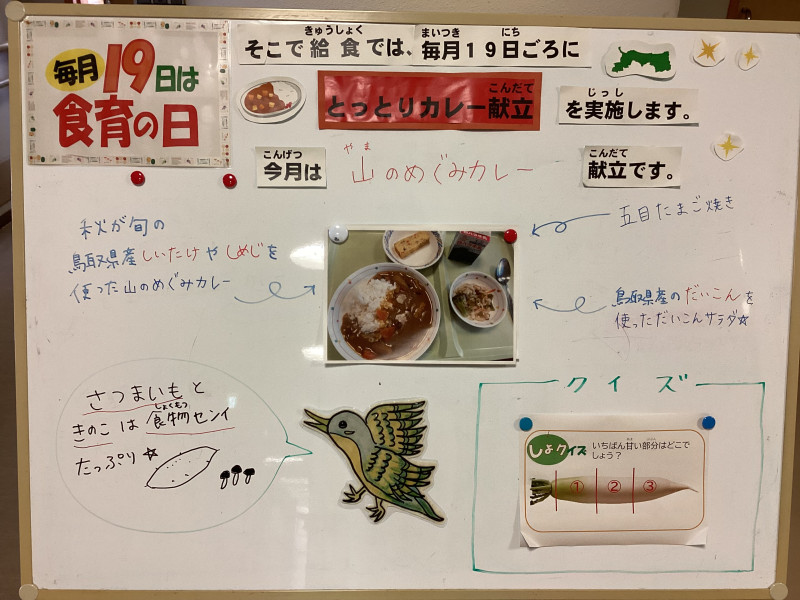 毎月19日は
食育の日
そこで給食では、毎月19日ごろに
きゅうしょく まいつき にち
とっとりカレー献立を実施します。
こんだて じっし
今月は山のめぐみカレー献立です。
こんげつ やま こんだて
秋が旬の
鳥取県産しいたけやしめじを
使った山のめぐみカレー
五目たまご焼き
鳥取県産のだいこんを
使っただいこんサラダ☆
さつまいもと
きのこは食物センイ
しょくもつ
たっぷり☆
クイズ
しょクイズ
いちばん甘い部分はどこで
しょう?
① ② ③